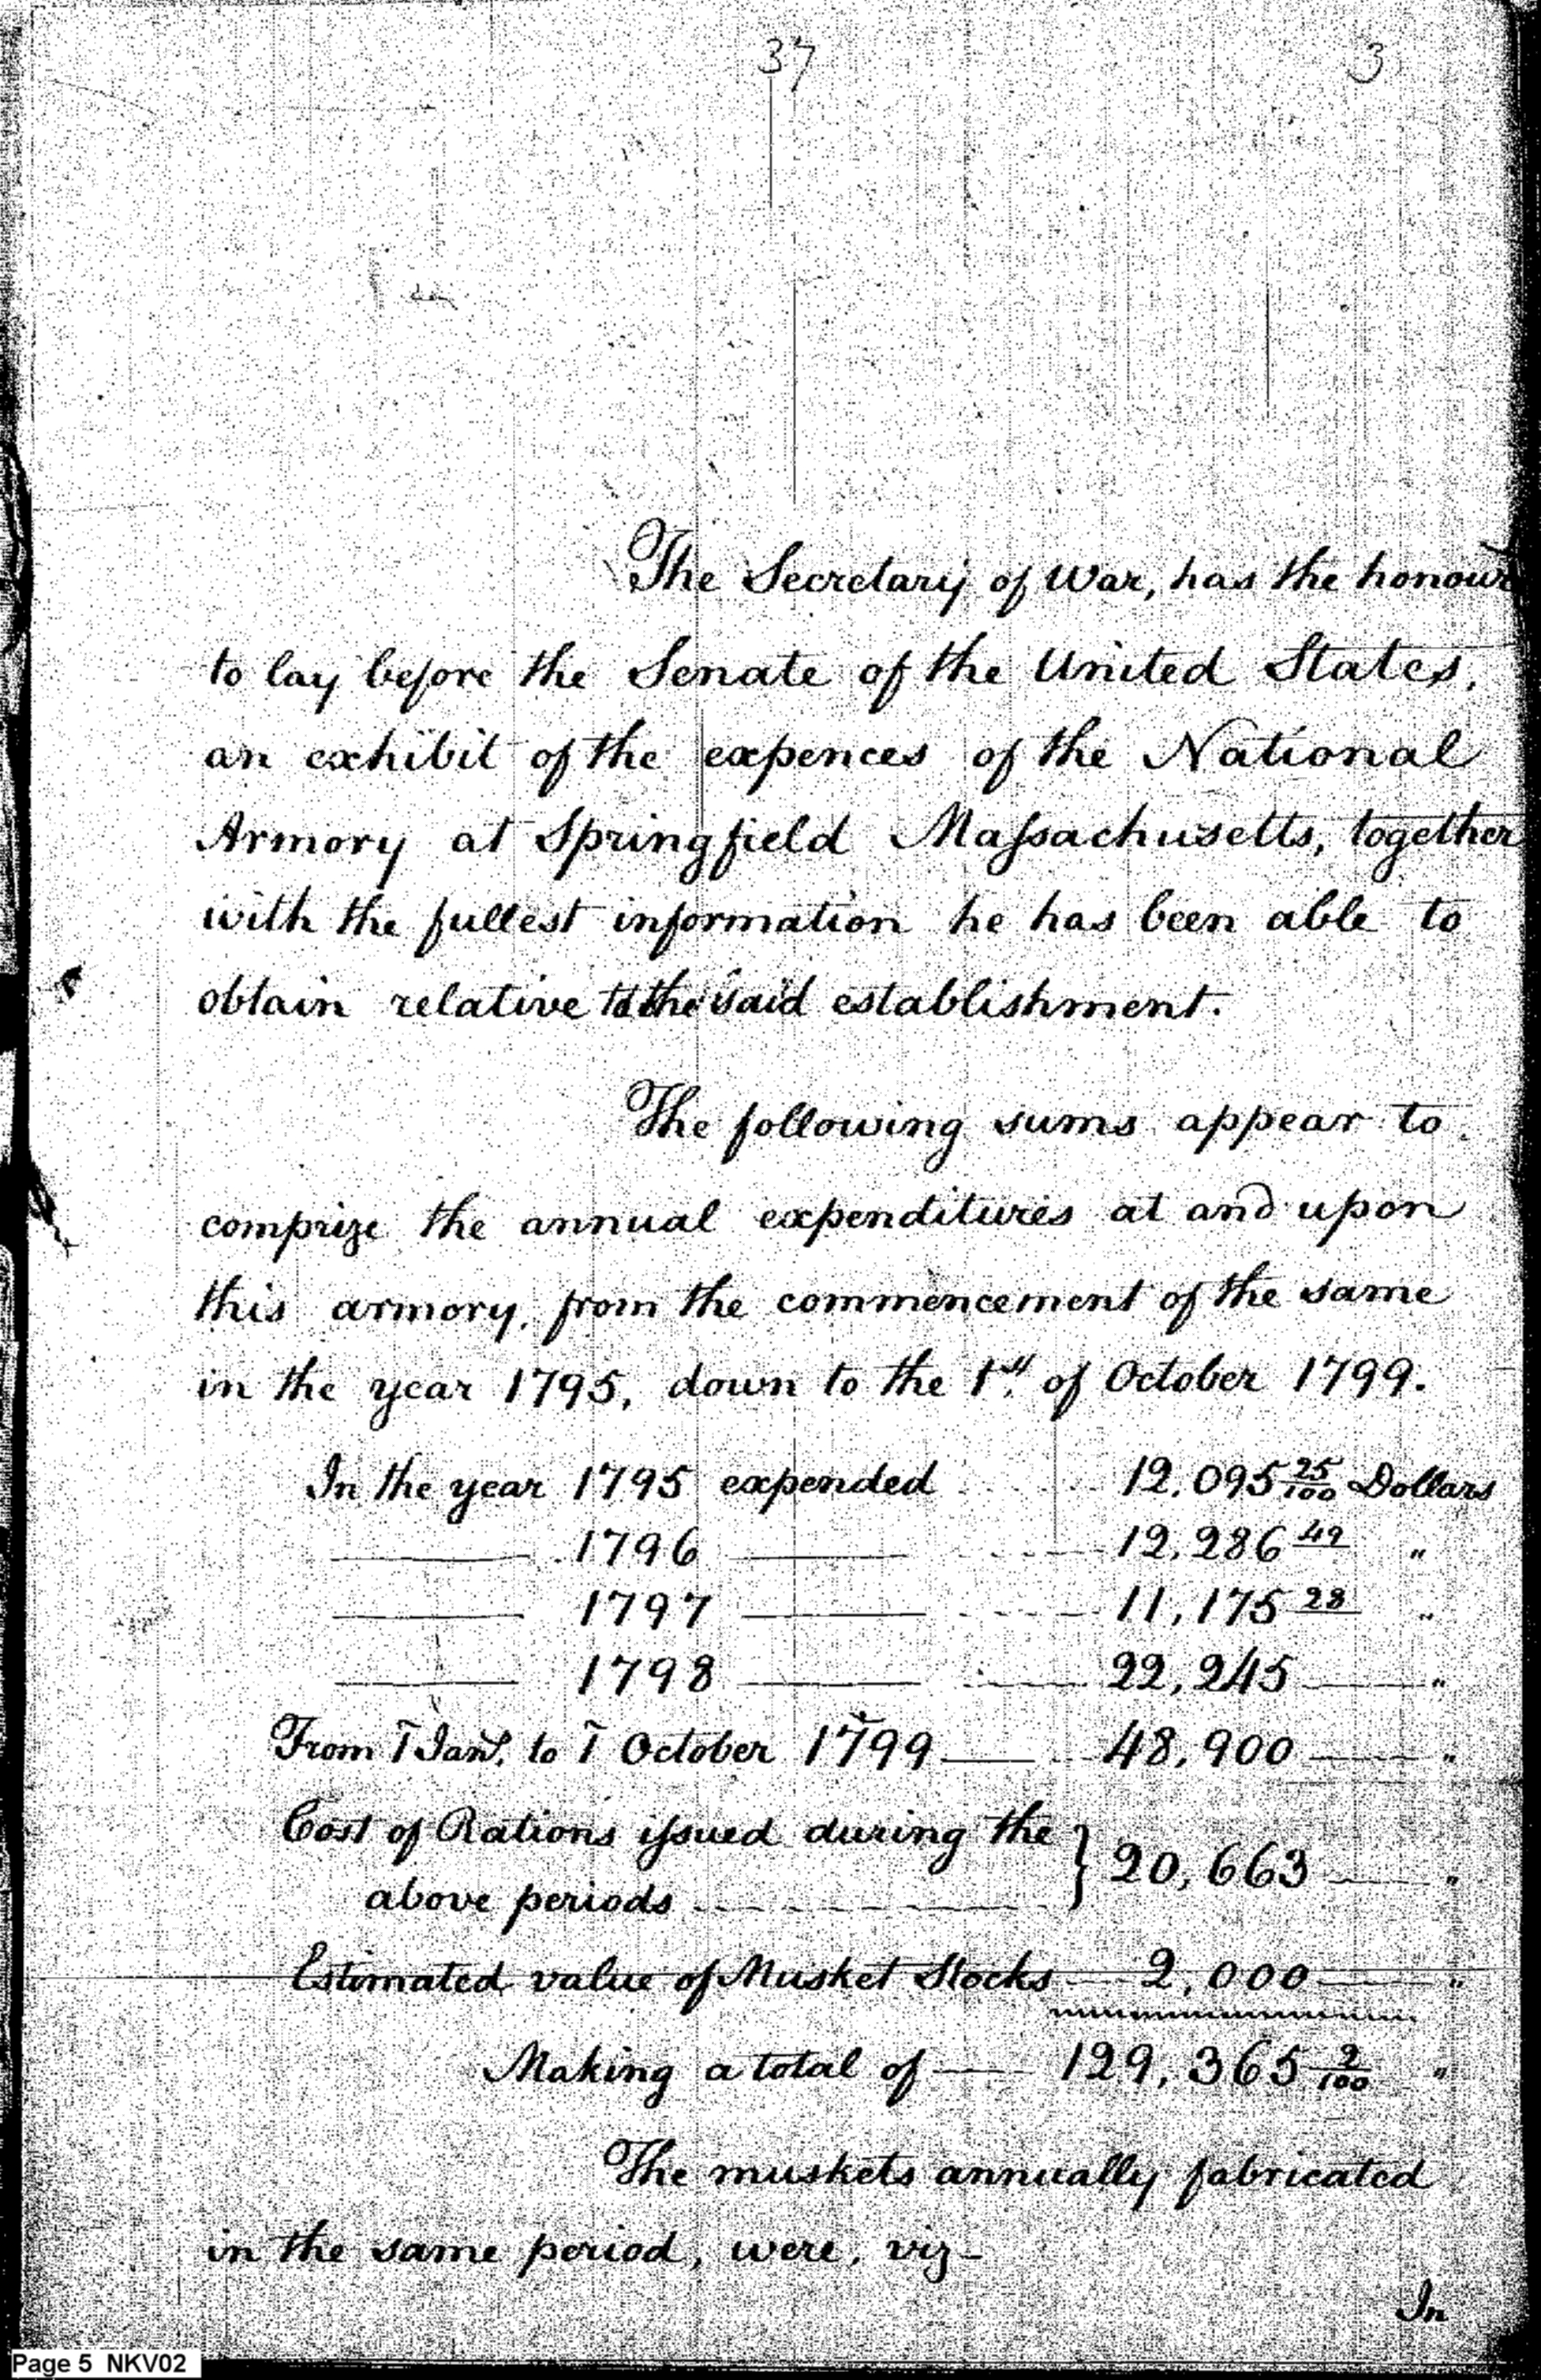 37
3
The Secretary of War, has the honour
to lay before the Senate of the United States,
an exhibit of the expences of the National
Armory at Springfield Massachusetts, together
with the fullest information he has been able to
obtain relative to the said establishment.
The following sums appear to
comprize the annual expenditures at and upon
this armory, from the commencement of the same
in the year 1795, down to the 1st. of October 1799.
In the year 1795 expended 12,095 25/100 Dollars
1796 12,286 49 "
1797 11,175 28 "
1798 22,245 "
From 1 Jany. to 1 October 1799 48,900 "
Cost of Rations issued during the
above periods } 20,663 "
Estimated value of Musket Stocks 2,000 "
Making a total of 129,365 2/100 "
The muskets annually fabricated
in the same period, were, viz-
In
Page 5 NKV02